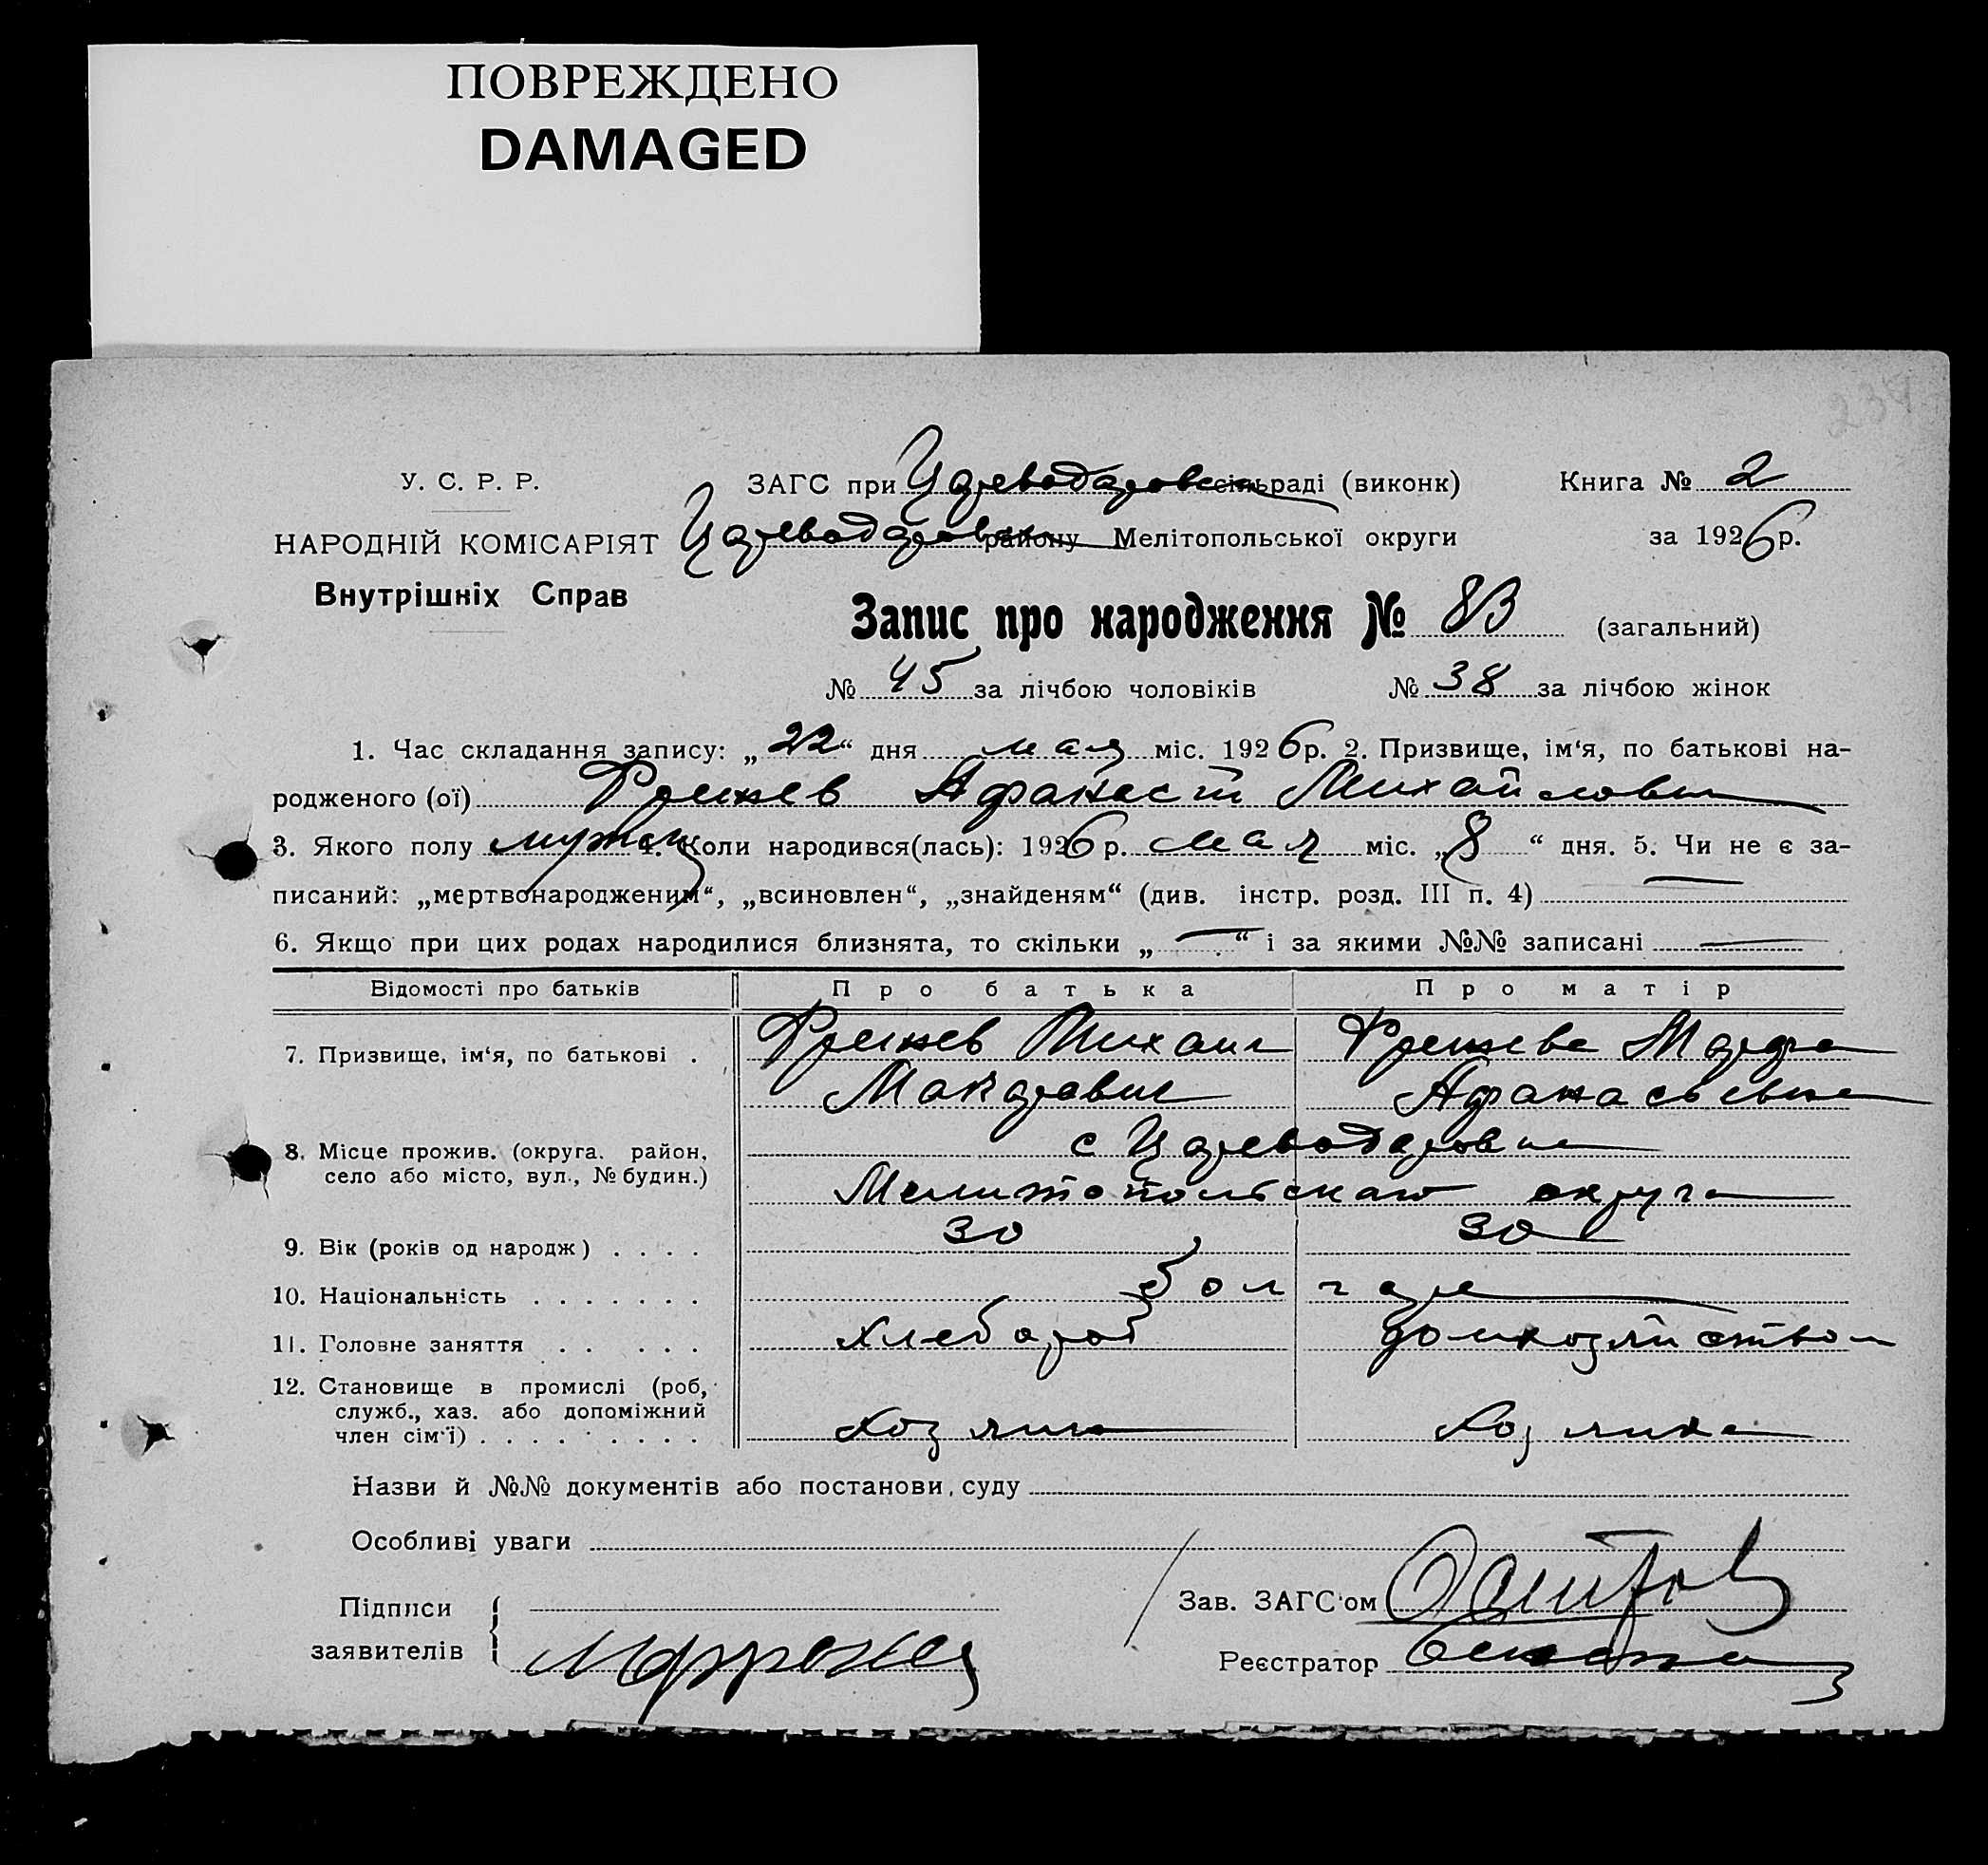 ПОВРЕЖДЕНО
DAMAGED
234
У. С. Р. Р. ЗАГС при Цареводаровск сільраді (виконк) Книга № 2
НАРОДНІЙ КОМІСАРІЯТ Цареводаровск району Мелітопольської округи за 1926р.
Внутрішніх Справ
Запис про народження № 83 (загальний)
№ 45 за лічбою чоловіків № 38 за лічбою жінок
1. Час складання запису: „22“ дня мая міс. 1926р. 2. Призвище, ім‘я, по батькові на-
родженого (ої) Афанасий Михайлович
3. Якого полу мужск 4. Коли народився(лась): 1926р. мая міс. „8“ дня. 5. Чи не є за-
писаний: „мертвонародженим“, „всиновлен“, „знайденям“ (див. інстр. розд. III п. 4) —
6. Якщо при цих родах народилися близнята, то скільки „—“ і за якими №№ записані —
Відомості про батьків Про батька Про матір
7. Призвище, ім‘я, по батькові . Михаил Марфа
Макарович Афанасьевна
8. Місце прожив. (округа. район, с Цареводаровка
село або місто, вул., № будин.) Мелитопольскаго округа
9. Вік (років од народж) . . . . 30 30
10. Національність . . . . . . . болгаре
11. Головне заняття . . . . . хлебороб домхозяйством
12. Становище в промислі (роб,
служб., хаз. або допоміжний
член сім‘ї) . . . . . . . . . хозяин хозяйка
Назви й №№ документів або постанови, суду
Особливі уваги
Підписи Зав. ЗАГС‘ом
заявителів Реєстратор